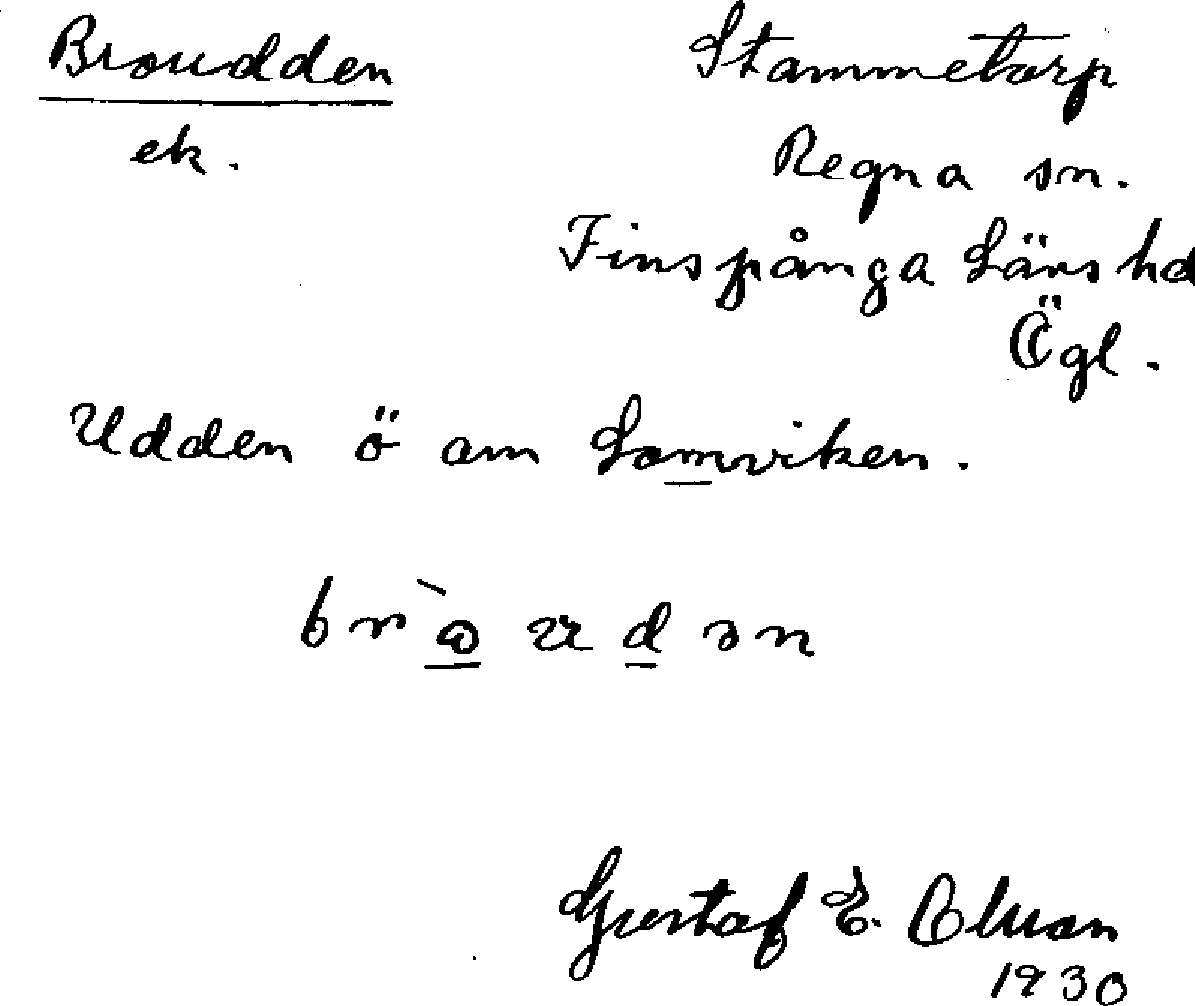 Broudden
ek.
Stammetorp
Regna sn.
Finspånga Läns hd
Ögl.
Udden ö om Lomviken.
brò̲ud̲ən
Gustaf E.
1930